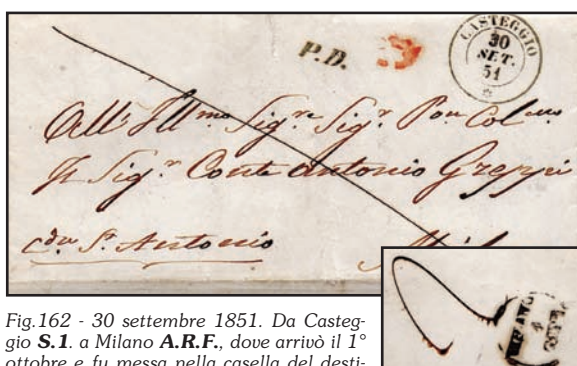 P.D.
CASTEGGIO
30
SET.
51
All' Ill.mo Sig.re Sig.r Pon Col.mo
Il Sig.r Conte Antonio Greppi
c.da S. Antonio
MILANO
Fig.162 - 30 settembre 1851. Da Casteg-
gio S.1. a Milano A.R.F., dove arrivò il 1°
ottobre e fu messa nella casella del desti-